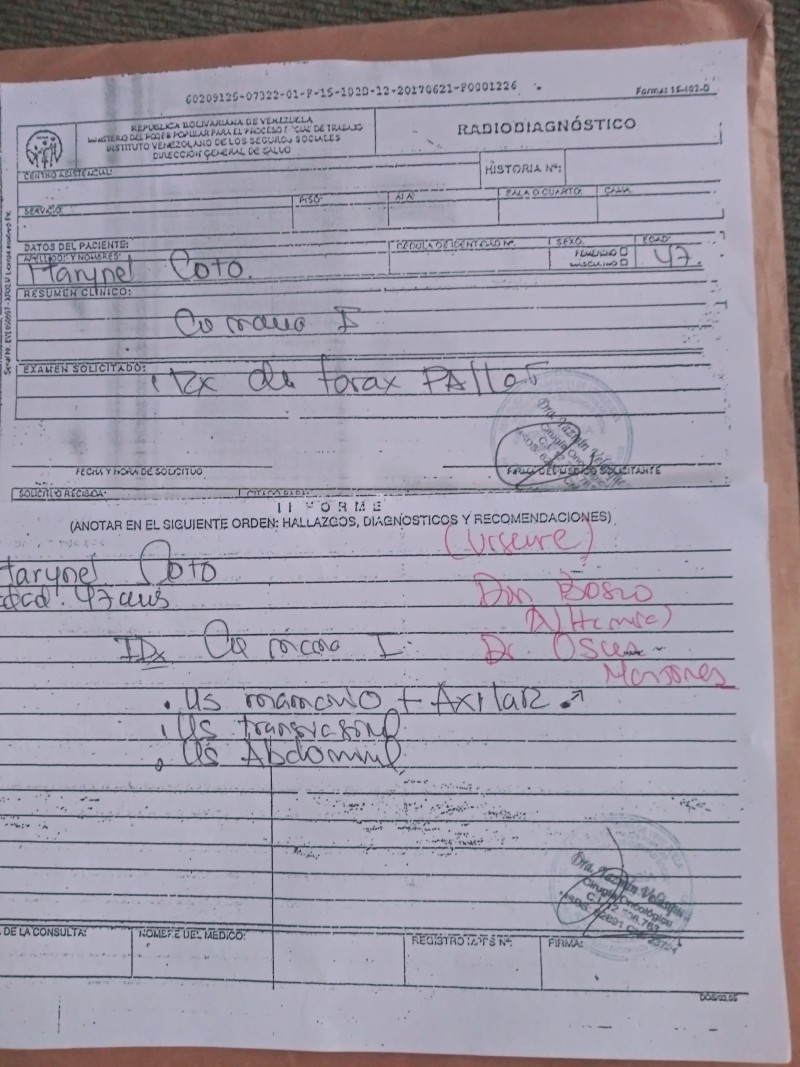 60209125-07322-01-P-15-102D-12-20170621-P0001226
Forma: 15-102-D
REPUBLICA BOLIVARIANA DE VENEZUELA
MINISTERIO DEL PODER POPULAR PARA EL PROCESO DE TRABAJO
INSTITUTO VENEZOLANO DE LOS SEGUROS SOCIALES
DIRECCIÓN GENERAL DE SALUD
RADIODIAGNÓSTICO
CENTRO ASISTENCIAL:
HISTORIA Nº:
SERVICIO:
PISO:
ALA:
SALA O CUARTO:
CAMA:
DATOS DEL PACIENTE:
APELLIDOS Y NOMBRES:
CEDULA DE IDENTIDAD Nº:
SEXO:
FEMENINO
MASCULINO
EDAD:
Marynel Coto.
47.
RESUMEN CLÍNICO:
Ca mama I
EXAMEN SOLICITADO:
Rx de torax PA/Lat
FECHA Y HORA DE SOLICITUD
FIRMA DEL MEDICO SOLICITANTE
SOLICITUD RECIBIDA:
CITADO PARA:
INFORME
(ANOTAR EN EL SIGUIENTE ORDEN: HALLAZGOS, DIAGNOSTICOS Y RECOMENDACIONES)
Marynel Coto
Edad: 47 años
Don Bosco
Dr. Oscar
IDx Ca mama I
. Us mamario + Axilar
. Us transvaginal
. Us Abdominal
Dra. Yazmín
Cirugía Oncológica
DE LA CONSULTA:
NOMBRE DEL MEDICO:
REGISTRO M.P.P.S Nº:
FIRMA: